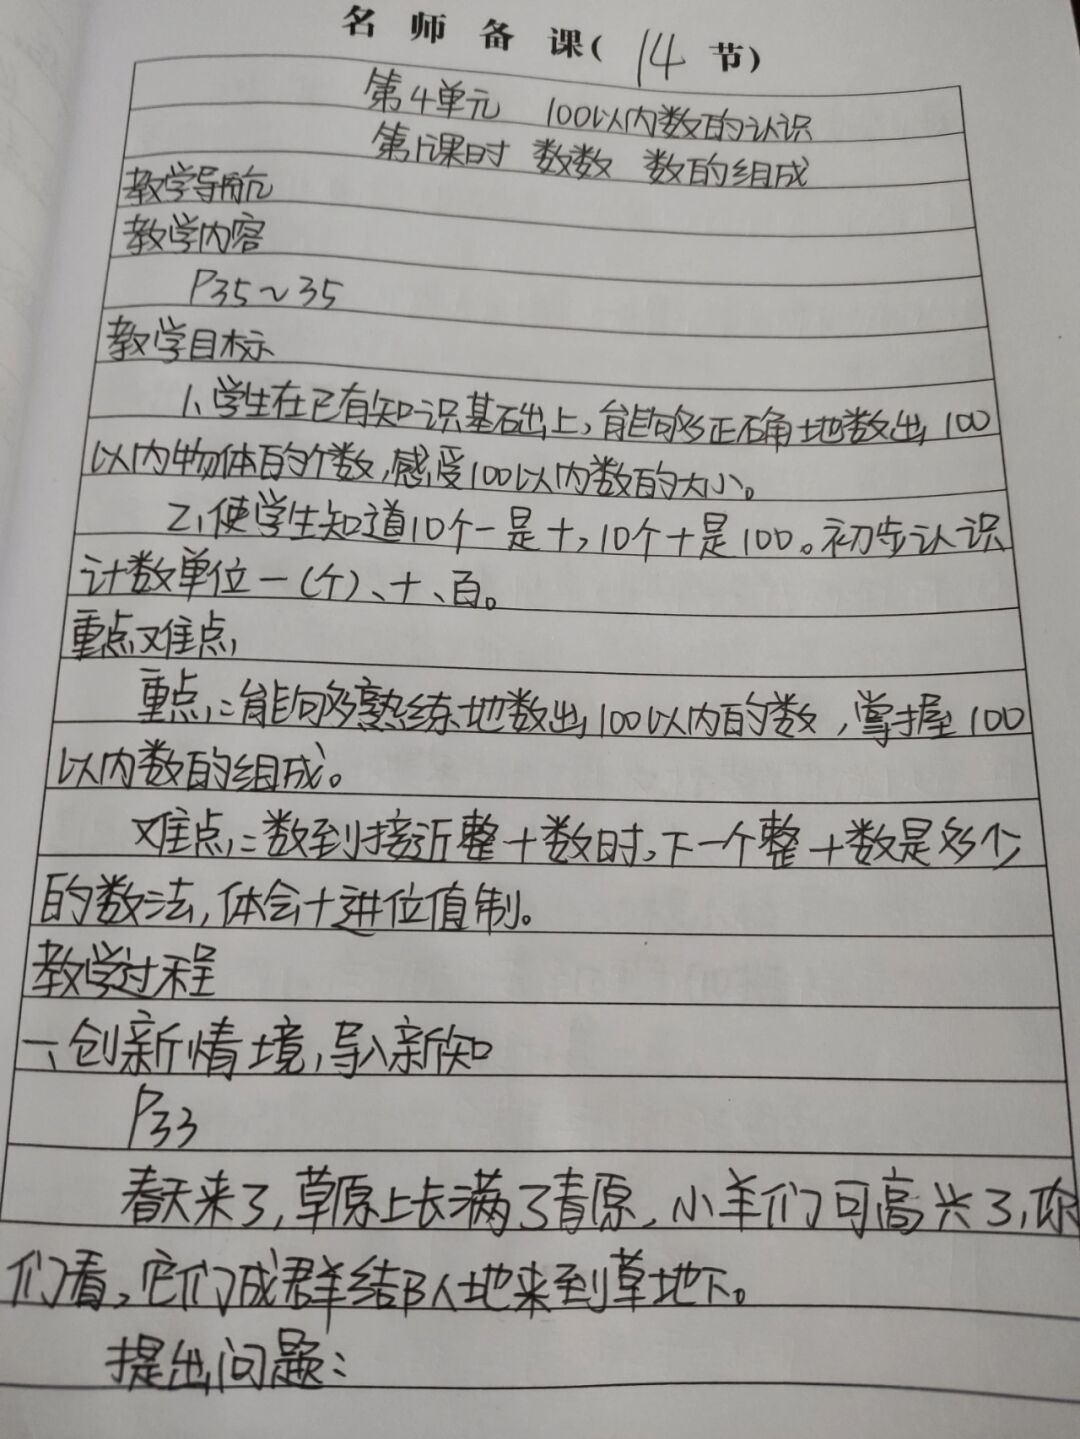 名师备课(14节)
第4单元 100以内数的认识
第1课时 数数 数的组成
教学导航
教学内容
P35~35
教学目标
1、学生在已有知识基础上,能够正确地数出100
以内物体的个数,感受100以内数的大小。
2、使学生知道10个一是十,10个十是100。初步认识
计数单位一(个)、十、百。
重点难点
重点:能够熟练地数出100以内的数,掌握100
以内数的组成。
难点:数到接近整十数时,下一个整十数是多少
的数法,体会十进位值制。
教学过程
一、创新情境,导入新知
P33
春天来了,草原上长满了青原,小羊们可高兴了,你
们看,它们成群结队地来到草地下。
提出问题: